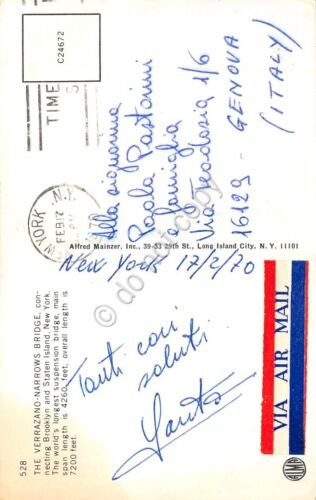 528
THE VERRAZANO-NARROWS BRIDGE, con-
necting Brooklyn and Staten Island, New York.
The world's longest suspension bridge, main
span length is 4260 feet, overall length is
7200 feet.
New York 17/2/70
Tanti cari
saluti
Alfred Mainzer, Inc., 39-33 29th St., Long Island City, N. Y. 11101
C24672
TIME
S
NEW YORK N.Y.
FEB 17
1970
Alla signorina
Paola Pastorini
e famiglia
Via Teodosia 1/6
16129 - GENOVA
(ITALY)
VIA AIR MAIL
do not copy